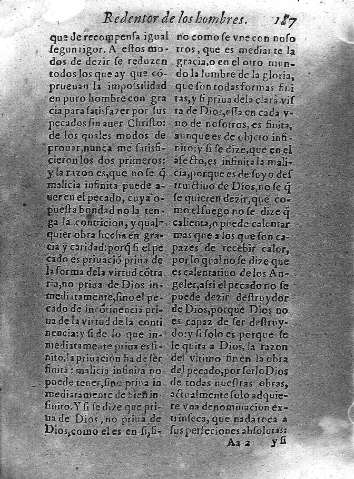 Redentor de los hombres. 187
que de recompensa igual
segun rigor. A estos mo-
dos de dezir se reduzen
todos los que ay que cõ-
prueuan la impossibilidad
en puro hombre con gra
cia para satisfazer por sus
pecados sin auer Christo:
de los quales modos de
prouar, nunca me satisfi-
cieron los dos primeros:
y la razon es, que no se q̃
malicia infinita puede a-
uer en el pecado, cuya o-
puesta bondad no la ten-
ga la contricion, y qual-
quier obra hecha en gra-
cia y caridad: porq̃ si el pe
cado es priuació priua de
la forma de la virtud cõtra
ria, no priua de Dios in-
mediatamente, sino el pe-
cado de incontinencia pri-
ua de la virtud de la conti
nencia: y si de lo que in-
mediatamente priua es fi-
nito, la priuacion ha de ser
finita: malicia infinita no
puede tener, sino priua in
mediatamente de bien in-
finito. Y si se dize que pri-
ua de Dios, no priua de
Dios, como el es en si, si-
no como se vne con noso
tros, que es mediante la
gracia, o en el otro mun-
do la lumbre de la gloria,
que son todas formas fini-
tas, y si priua de la clara vis
ta de Dios, esta en cada v-
no de nosotros, es finita,
aunque es de objeto infi-
nito; y si se dize, que en el
afecto, es infinita la mali-
cia, porque es de suyo des
tructiuo de Dios, no se q̃
se quieren dezir, que co-
mo el fuego no se dize q̃
calienta, o puede calentar
mas que a los que son ca-
pazes de recebir calor,
por lo qual no se dize que
es calentatiuo de los An-
geles, assi el pecado no se
puede dezir destruydor
de Dios, porque Dios no
es capaz de ser destruy-
do: y si solo es porque se
le quita a Dios, la razon
del vltimo fin en la obra
del pecado, por serlo Dios
de todas nuestras obras,
actualmente solo adquie-
re vna denominacion ex-
trinseca, que nada toca a
sus perfeciones absolutas:
Aa 2 y si